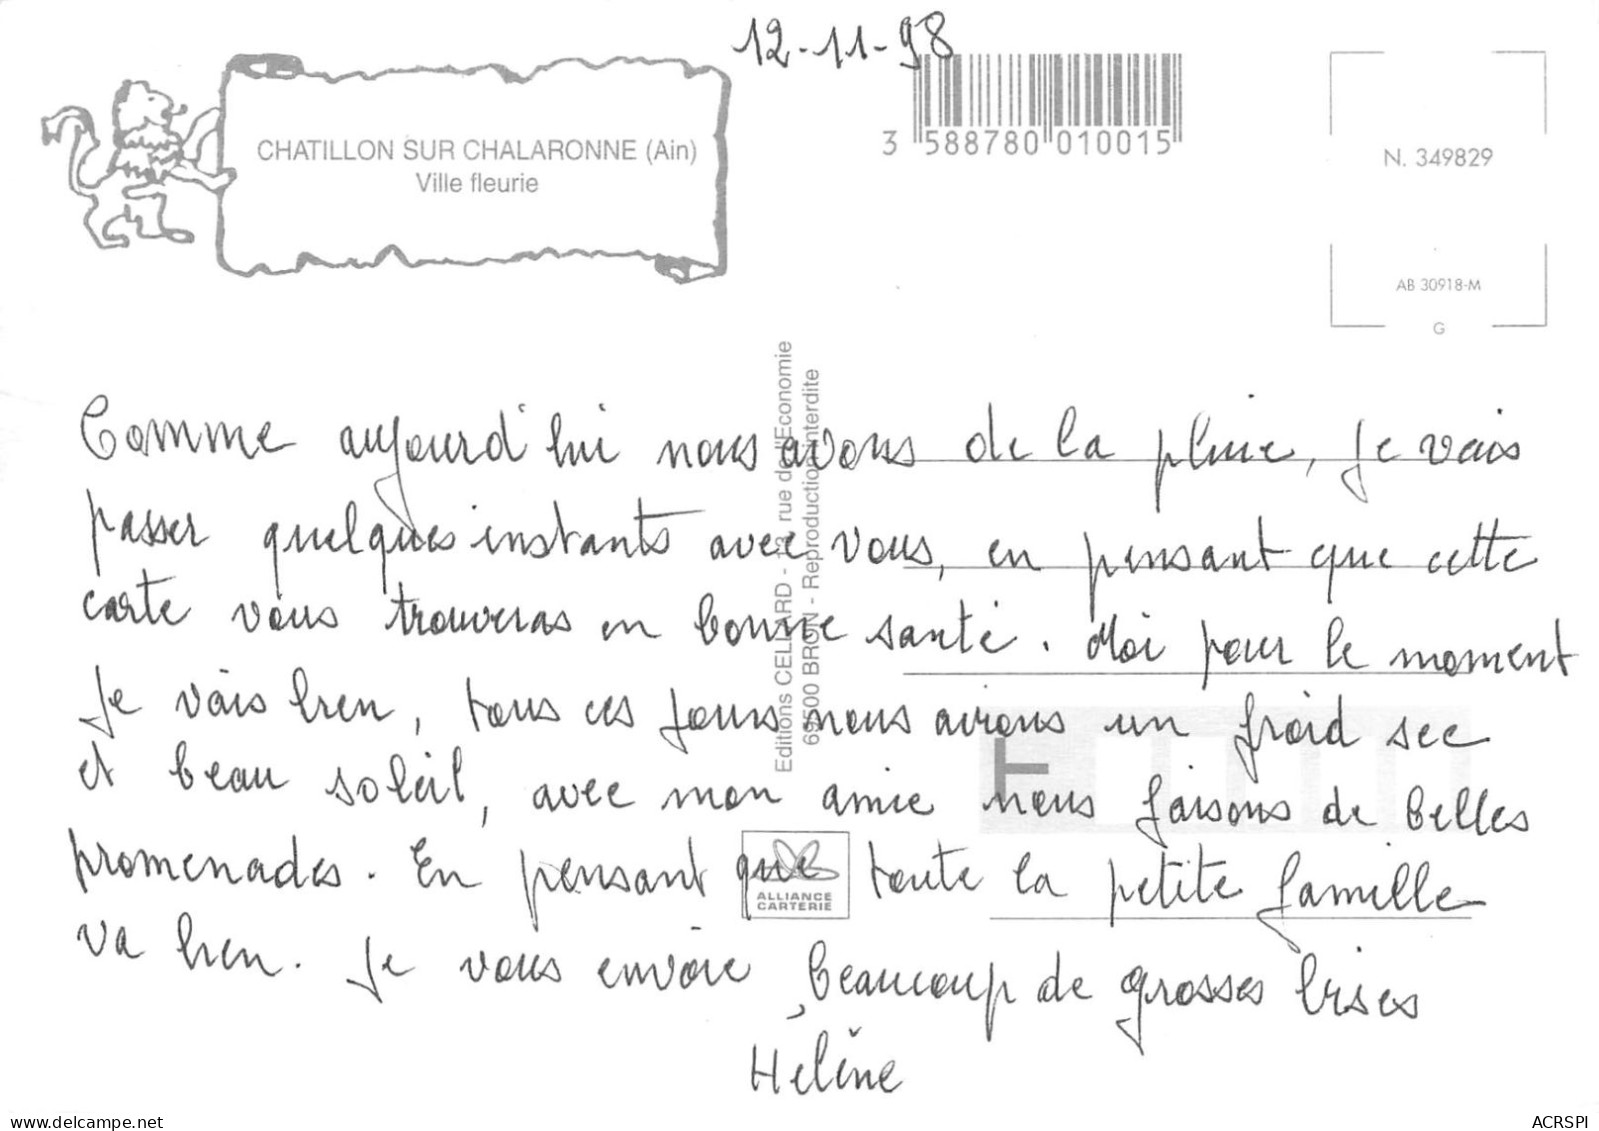 12-11-98
CHATILLON SUR CHALARONNE (Ain)
Ville fleurie
3 588780 010015
N. 349829
AB 30918-M
G
Editions CELLARD - 13 rue de l'Economie
69500 BRON - Reproduction interdite
Comme aujourd'hui nous avons de la pluie, je vais
passer quelques instants avec vous, en pensant que cette
carte vous trouveras en bonne santé. Moi pour le moment
je vais bien, tous ces jours nous avions un froid sec
et beau soleil, avec mon amie nous faisons de belles
promenades. En pensant que toute la petite famille
va bien. Je vous envoie beaucoup de grosses bises
Helène
ALLIANCE
CARTERIE
delcampe.net
ACRSPI